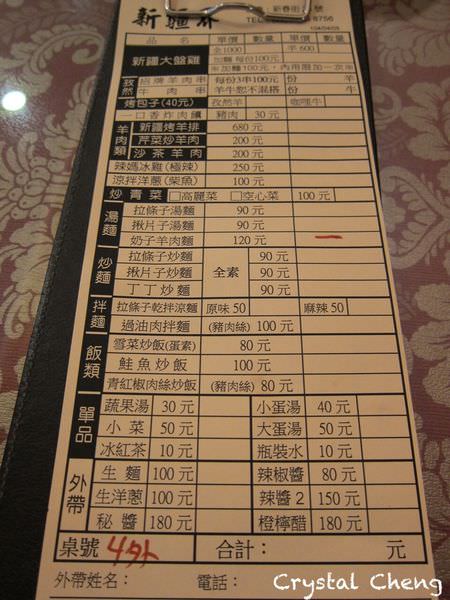 新疆
TEL 8756
新春街 號
104/04/09
品名 單價 數量 單價 數量
新疆大盤雞 全1000 羊600
加麵 每份100元
孜然 招牌羊肉串 每份3串100元 份 羊
牛肉串 羊牛恕不混搭 份 牛
烤包子(40元) 孜然羊 咖哩牛
一口香炸肉饢 豬肉 30元
羊肉類 新疆烤羊排 680元
芹菜炒羊肉 200元
沙茶羊肉 200元
辣媽冰雞(極辣) 250元
涼拌洋蔥(柴魚) 100元
炒青菜 □高麗菜 □空心菜 100元
湯麵 拉條子湯麵 90元
揪片子湯麵 90元
奶子羊肉麵 120元 一
炒麵 拉條子炒麵 全素 90元
揪片子炒麵 90元
丁丁炒麵 90元
拌麵 拉條子乾拌涼麵 原味50 麻辣50
過油肉拌麵 (豬肉絲) 100元
飯類 雪菜炒飯(蛋素) 80元
鮭魚炒飯 100元
青紅椒肉絲炒飯 (豬肉絲) 80元
單品 蔬果湯 30元 小蛋湯 40元
小菜 50元 大蛋湯 50元
冰紅茶 10元 瓶裝水 10元
外帶 生麵 100元 辣椒醬 80元
生洋蔥 100元 辣醬2 150元
秘醬 180元 橙檸醋 180元
桌號 4外 合計： 元
外帶姓名： 電話：
Crystal Cheng